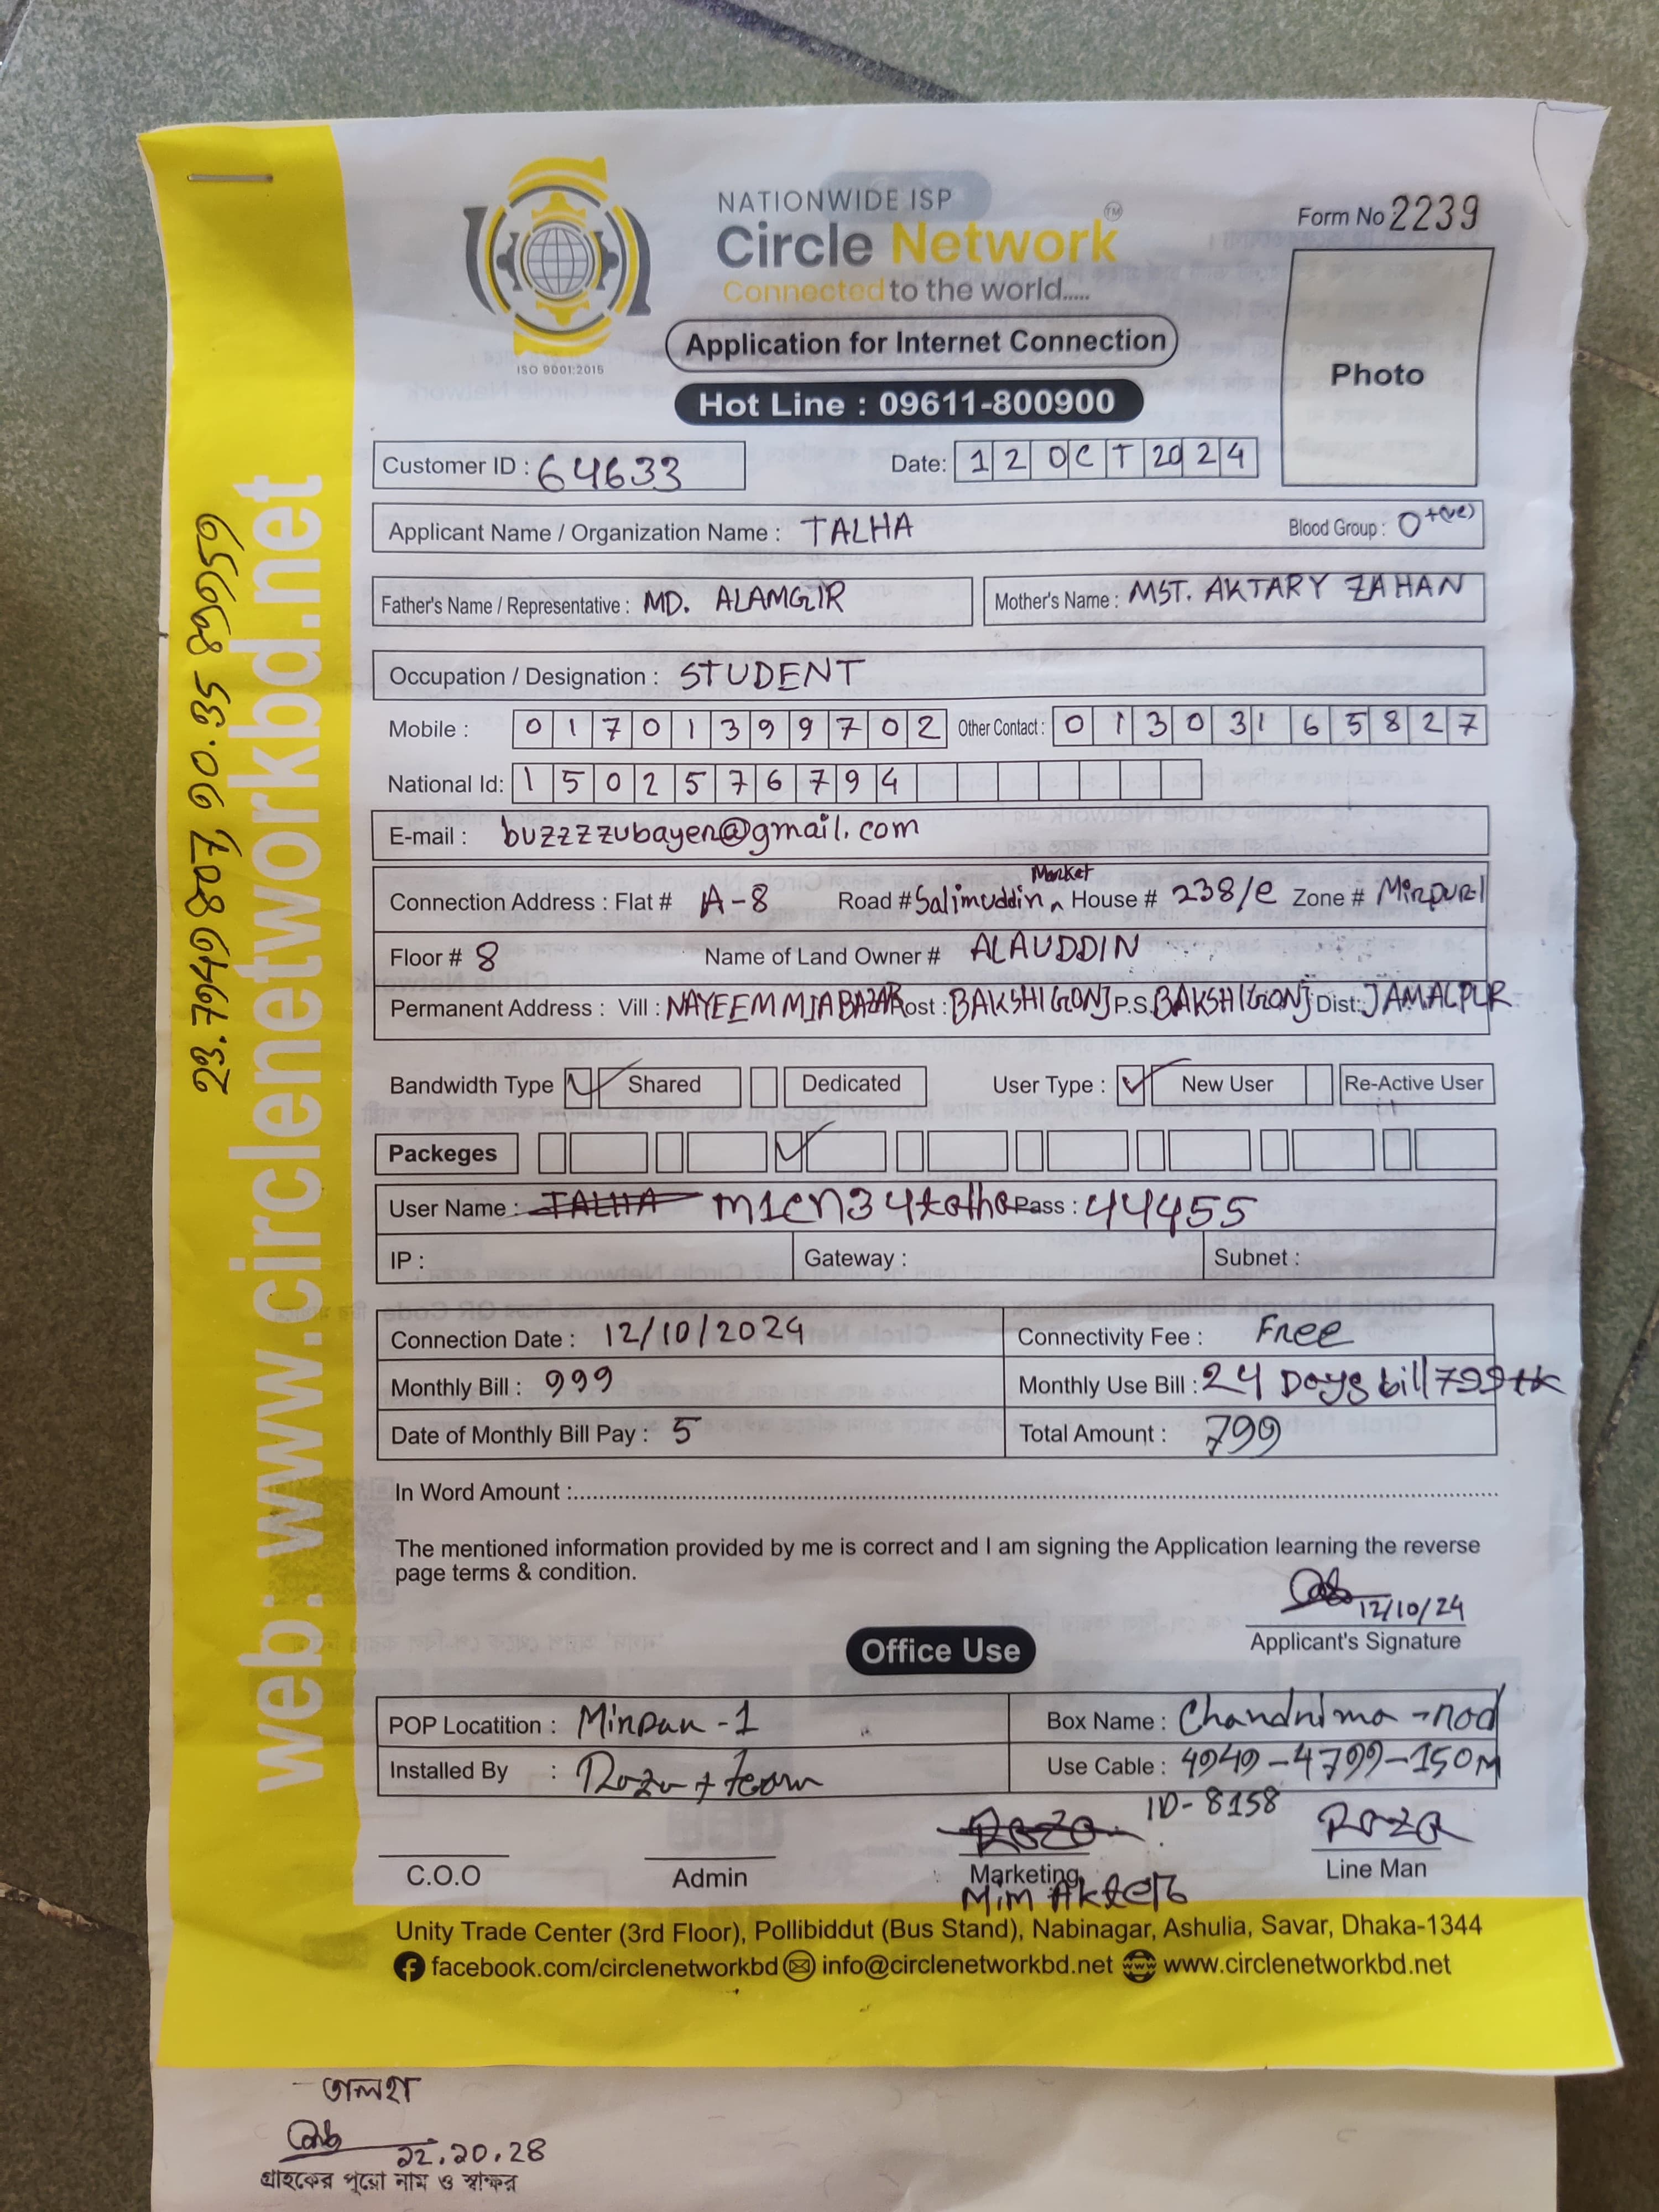 NATIONWIDE ISP
Circle Network TM
Connected to the world.....
ISO 9001:2015
Form No 2239
Photo
Application for Internet Connection
Hot Line : 09611-800900
Customer ID : 64633
Date: 12 OCT 2024
Applicant Name / Organization Name : TALHA
Blood Group : O+(ve)
Father's Name / Representative : MD. ALAMGIR
Mother's Name : MST. AKTARY ZAHAN
Occupation / Designation : STUDENT
Mobile : 01701399702
Other Contact : 01303165827
National Id: 1502576794
E-mail : buzzzzubayer@gmail.com
Connection Address : Flat # A-8 Road # Salimuddin Market House # 238/e Zone # Mirpur-1
Floor # 8 Name of Land Owner # ALAUDDIN
Permanent Address : Vill : NAYEEM MIA BAZAR Post : BAKSHIGONJ P.S. BAKSHIGONJ Dist: JAMALPUR
Bandwidth Type Shared Dedicated User Type : New User Re-Active User
Packeges
User Name : TALHA m1cn34talha Pass : 44455
IP : Gateway : Subnet :
Connection Date : 12/10/2024
Connectivity Fee : Free
Monthly Bill : 999
Monthly Use Bill : 24 Days bill 799 tk
Date of Monthly Bill Pay : 5
Total Amount : 799
In Word Amount :
The mentioned information provided by me is correct and I am signing the Application learning the reverse
page terms & condition.
12/10/24
Applicant's Signature
Office Use
POP Locatition : Mirpur - 1
Box Name : Chandnima - rod
Installed By : Roza + team
Use Cable : 4949-4799-150M
ID- 8158
Roza
Roza
C.O.O Admin Marketing Line Man
Mim Akter
Unity Trade Center (3rd Floor), Pollibiddut (Bus Stand), Nabinagar, Ashulia, Savar, Dhaka-1344
facebook.com/circlenetworkbd info@circlenetworkbd.net www www.circlenetworkbd.net
web: www.circlenetworkbd.net
তালহা
১২.১০.২৪
গ্রাহকের পুরো নাম ও স্বাক্ষর